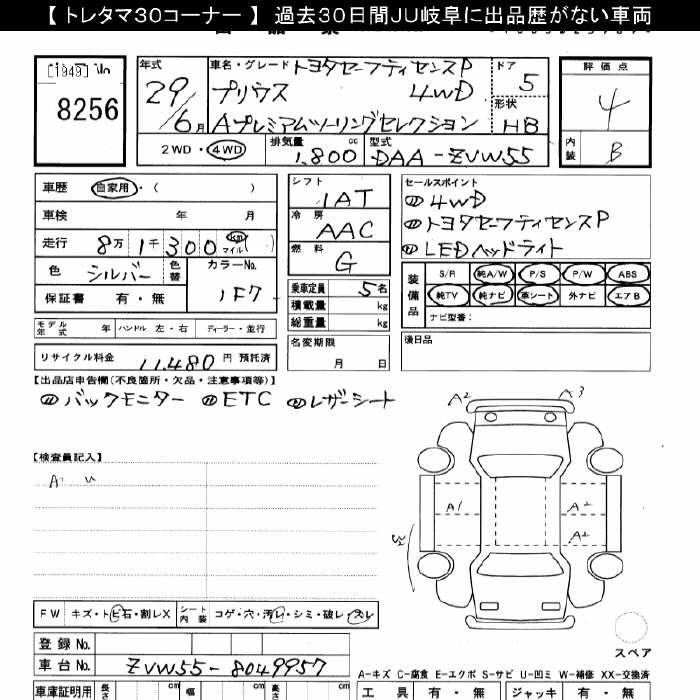 【 トレタマ３０コーナー 】 過去３０日間ＪＵ岐阜に出品歴がない車両
[1949]
8256
年式
29/6月
車名・グレード トヨタセーフティセンスP
プリウス 4WD
Aプレミアムツーリングセレクション
ドア 5
形状 HB
評価点
4
内装 B
2WD・4WD
排気量 1,800 cc
型式 DAA-ZVW55
車歴 自家用・( )
車検 年 月
走行 8万1千300 km マイル( )
色 シルバー 色替
カラーNo. 1F7
保証書 有・無
シフト 1AT
冷房 AAC
燃料 G
乗車定員 5名
積載量 kg
総重量 kg
セールスポイント
4WD
トヨタセーフティセンスP
LEDヘッドライト
装備品
S/R 純A/W P/S P/W ABS
純TV 純ナビ 革シート 外ナビ エアB
ナビ型番：
モデル年式 年 ハンドル 左・右 ディーラー・並行
名変期限 月 日
後日品
リサイクル料金 11,480 円 預託済
【出品店申告欄(不良箇所・欠品・注意事項等)】
バックモニター ETC レザーシート
【検査員記入】
A U
A2 A3
A1 A2
A2
FW キズ・トビ石・割レX シート内装 コゲ・穴・汚レ・シミ・破レ・スレ
スペア
登録 No.
車台 No. ZVW55-8049957
A-キズ C-腐食 E-エクボ S-サビ U-凹ミ W-補修 XX-交換済
車庫証明用 長さ cm 幅 cm 高さ cm
工具 有・無 ジャッキ 有・無